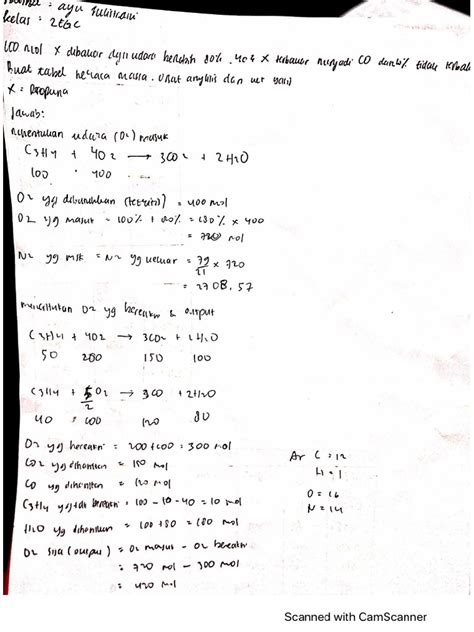 : ayu
kelas : 2EGC
100 mol X dibakar dgn udara berlebih 80%. 40% X terbakar menjadi CO dan 10% tidak
Buat tabel neraca massa. Orsat analysis dan wet basis
X = Propuna
Jawab:
Menentukan udara (O2) masuk
C3H4 + 4O2 → 3CO2 + 2H2O
100 400
O2 yg dibutuhkan (teoritis) = 400 mol
O2 yg masuk = 100% + 80% = 180% × 400
= 720 mol
N2 yg msk = N2 yg keluar = 79/21 × 720
= 2708,57
menentukan O2 yg bereaksi & output
C3H4 + 4O2 → 3CO2 + 2H2O
50 200 150 100
C3H4 + 5/2 O2 → 3CO + 2H2O
40 100 120 80
O2 yg bereaksi = 200 + 100 = 300 mol
CO2 yg dihasilkan = 150 mol
CO yg dihasilkan = 120 mol
C3H4 yg tdk bereaksi = 100 - 50 - 40 = 10 mol
H2O yg dihasilkan = 100 + 80 = 180 mol
O2 sisa (output) = O2 masuk - O2 bereaksi
= 720 mol - 300 mol
= 420 mol
Ar C = 12
H = 1
O = 16
N = 14
Scanned with CamScanner